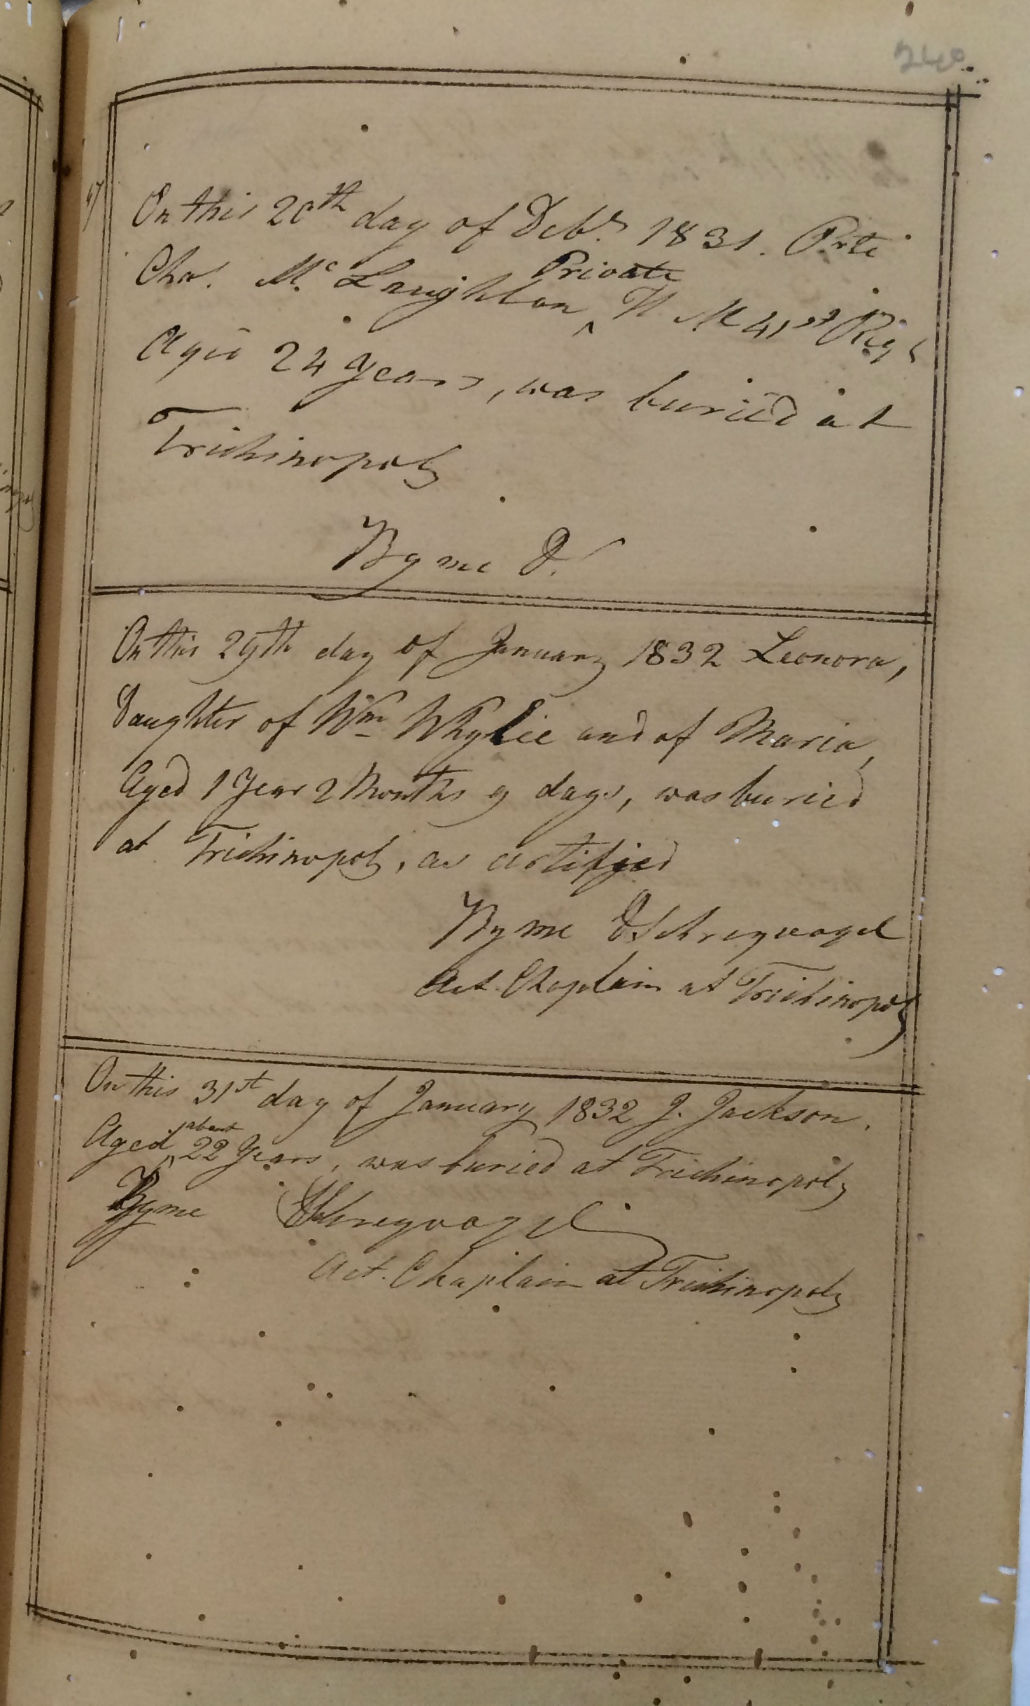 240
On this 20th day of Debr. 1831. Prte
Chs. Mc. Laughlan Private H M 41st Regt
Aged 24 years, was buried at
Trichinopoly
By me D.
On this 29th day of January 1832 Leonora,
Daughter of Wm Whylie and of Maria,
Aged 1 Year 2 Months 9 days, was buried
at Trichinopoly, as certified
By me D Schreyvogel
Act. Chaplain at Trichinopoly
On this 31st day of January 1832 J. Jackson.
Aged about 22 Years, was buried at Trichinopoly
By me Schreyvogel
Act. Chaplain at Trichinopoly